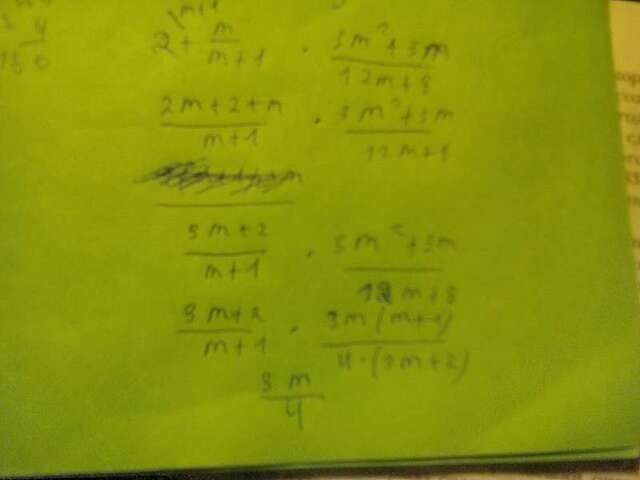 m+1
2 + m/(m+1) · (3m²+3m)/(12m+8)
(2m+2+m)/(m+1) · (3m²+3m)/(12m+8)
(3m+2)/(m+1) · (3m²+3m)/(12m+8)
(3m+2)/(m+1) · 3m(m+1)/(4·(3m+2))
3m/4